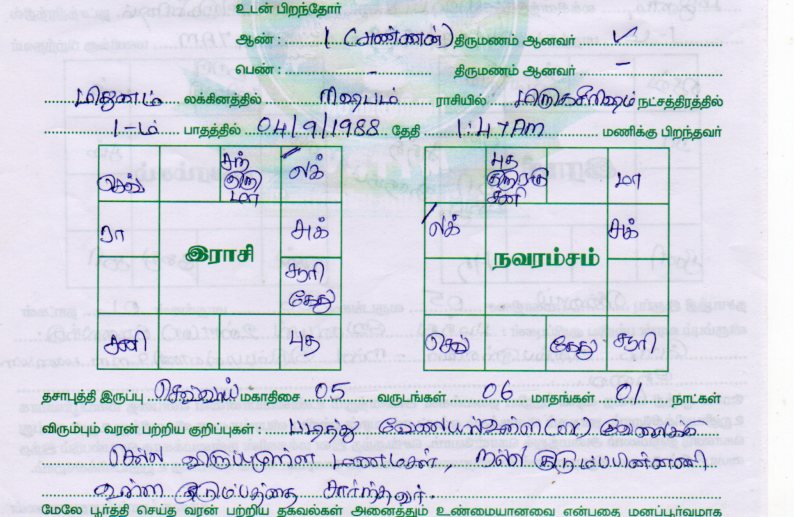 உடன் பிறந்தோர்
ஆண் : 1 (அண்ணன்) திருமணம் ஆனவர் ✓
பெண் : - திருமணம் ஆனவர் -
மிதுனம் லக்கினத்தில் ரிஷபம் ராசியில் மிருகசீரிஷம் நட்சத்திரத்தில்
1-ம் பாதத்தில் 04/9/1988 தேதி 1:47Am மணிக்கு பிறந்தவர்
செவ் சந் குரு மா லக்
ரா சுக்
இராசி
சூரி கேது
சனி புத
புத குரு சனி மா
லக் சுக்
நவரம்சம்
செவ் கேது சூரி
தசாபுத்தி இருப்பு செவ்வாய் மகாதிசை 05 வருடங்கள் 06 மாதங்கள் 01 நாட்கள்
விரும்பும் வரன் பற்றிய குறிப்புகள் : படித்து வேலையுள்ள (or) வேலைக்கு
செல்ல விருப்பமுள்ள மணமகள், நல்ல குடும்பபின்னணி
உள்ள குடும்பத்தை சார்ந்தவர்.
மேலே பூர்த்தி செய்த வரன் பற்றிய தகவல்கள் அனைத்தும் உண்மையானவை என்பதை மனப்பூர்வமாக